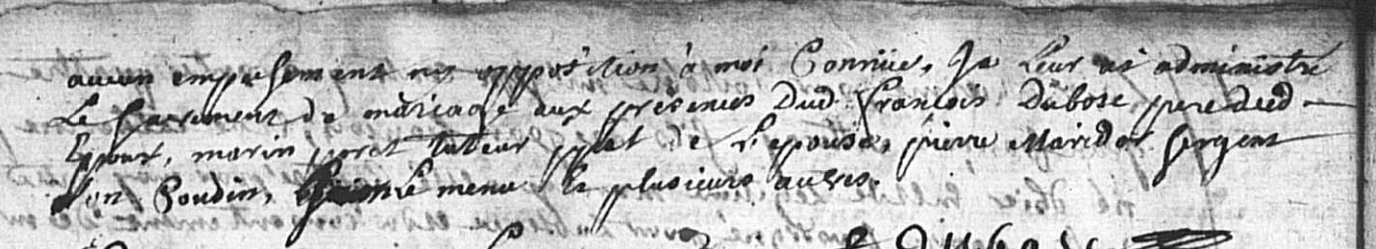 aucun empechement ny opposition a moi Connüe, Je leur ai administré
Le Sacrement de mariage aux presences Dud. François Dubosc pere dud
Epoux, marin poret tuteur de L'epouse, pierre Maridor Sergent
Son Cousin, Le menu & plusieurs autres.